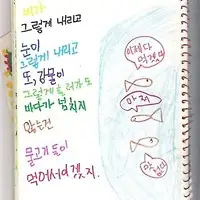 비가
그렇게 내리고
눈이
그렇게 내리고
또, 강물이
그렇게 흘러가도
바다가 넘치지
않는건
물고기들이
먹어서겠지.
이제 다
먹겠어
마셔